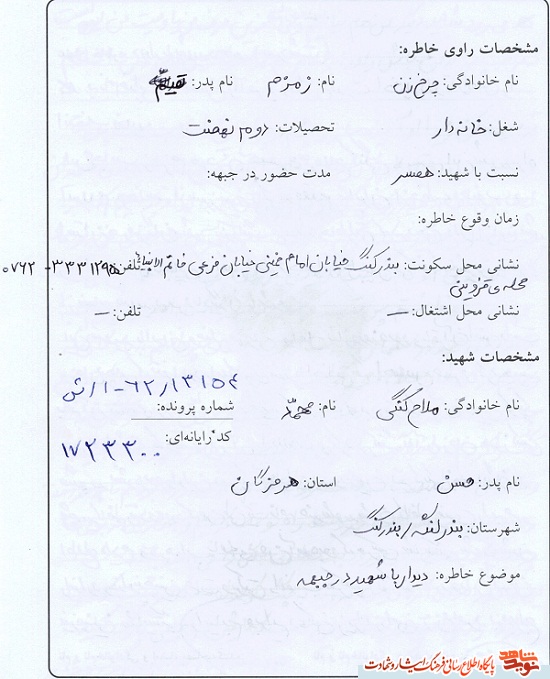 مشخصات راوی خاطره:
نام خانوادگی: چرخ زن نام: زمزم نام پدر:
شغل: خانه دار تحصیلات: دوم نهضت
نسبت با شهید: همسر مدت حضور در جبهه:
زمان وقوع خاطره:
نشانی محل سکونت: بندرکنگ خیابان امام خمینی خیابان فرعی خاتم الانبیاء تلفن: ۳۳۳۱۲۹۵-۰۷۶۲
محله ی قزوینی
نشانی محل اشتغال: — تلفن: —
مشخصات شهید:
۱-۶۲/۱۳۱۵۴/رش
نام خانوادگی: ملاح کنگی نام: محمد شماره پرونده:
کد رایانه‌ای: ۱۷۲۳۳۰۰
نام پدر: حسن استان: هرمزگان
شهرستان: بندرلنگه / بندرکنگ
موضوع خاطره: دیدار با شهید در جبهه
نوید شاهد پایگاه اطلاع رسانی فرهنگ ایثار و شهادت